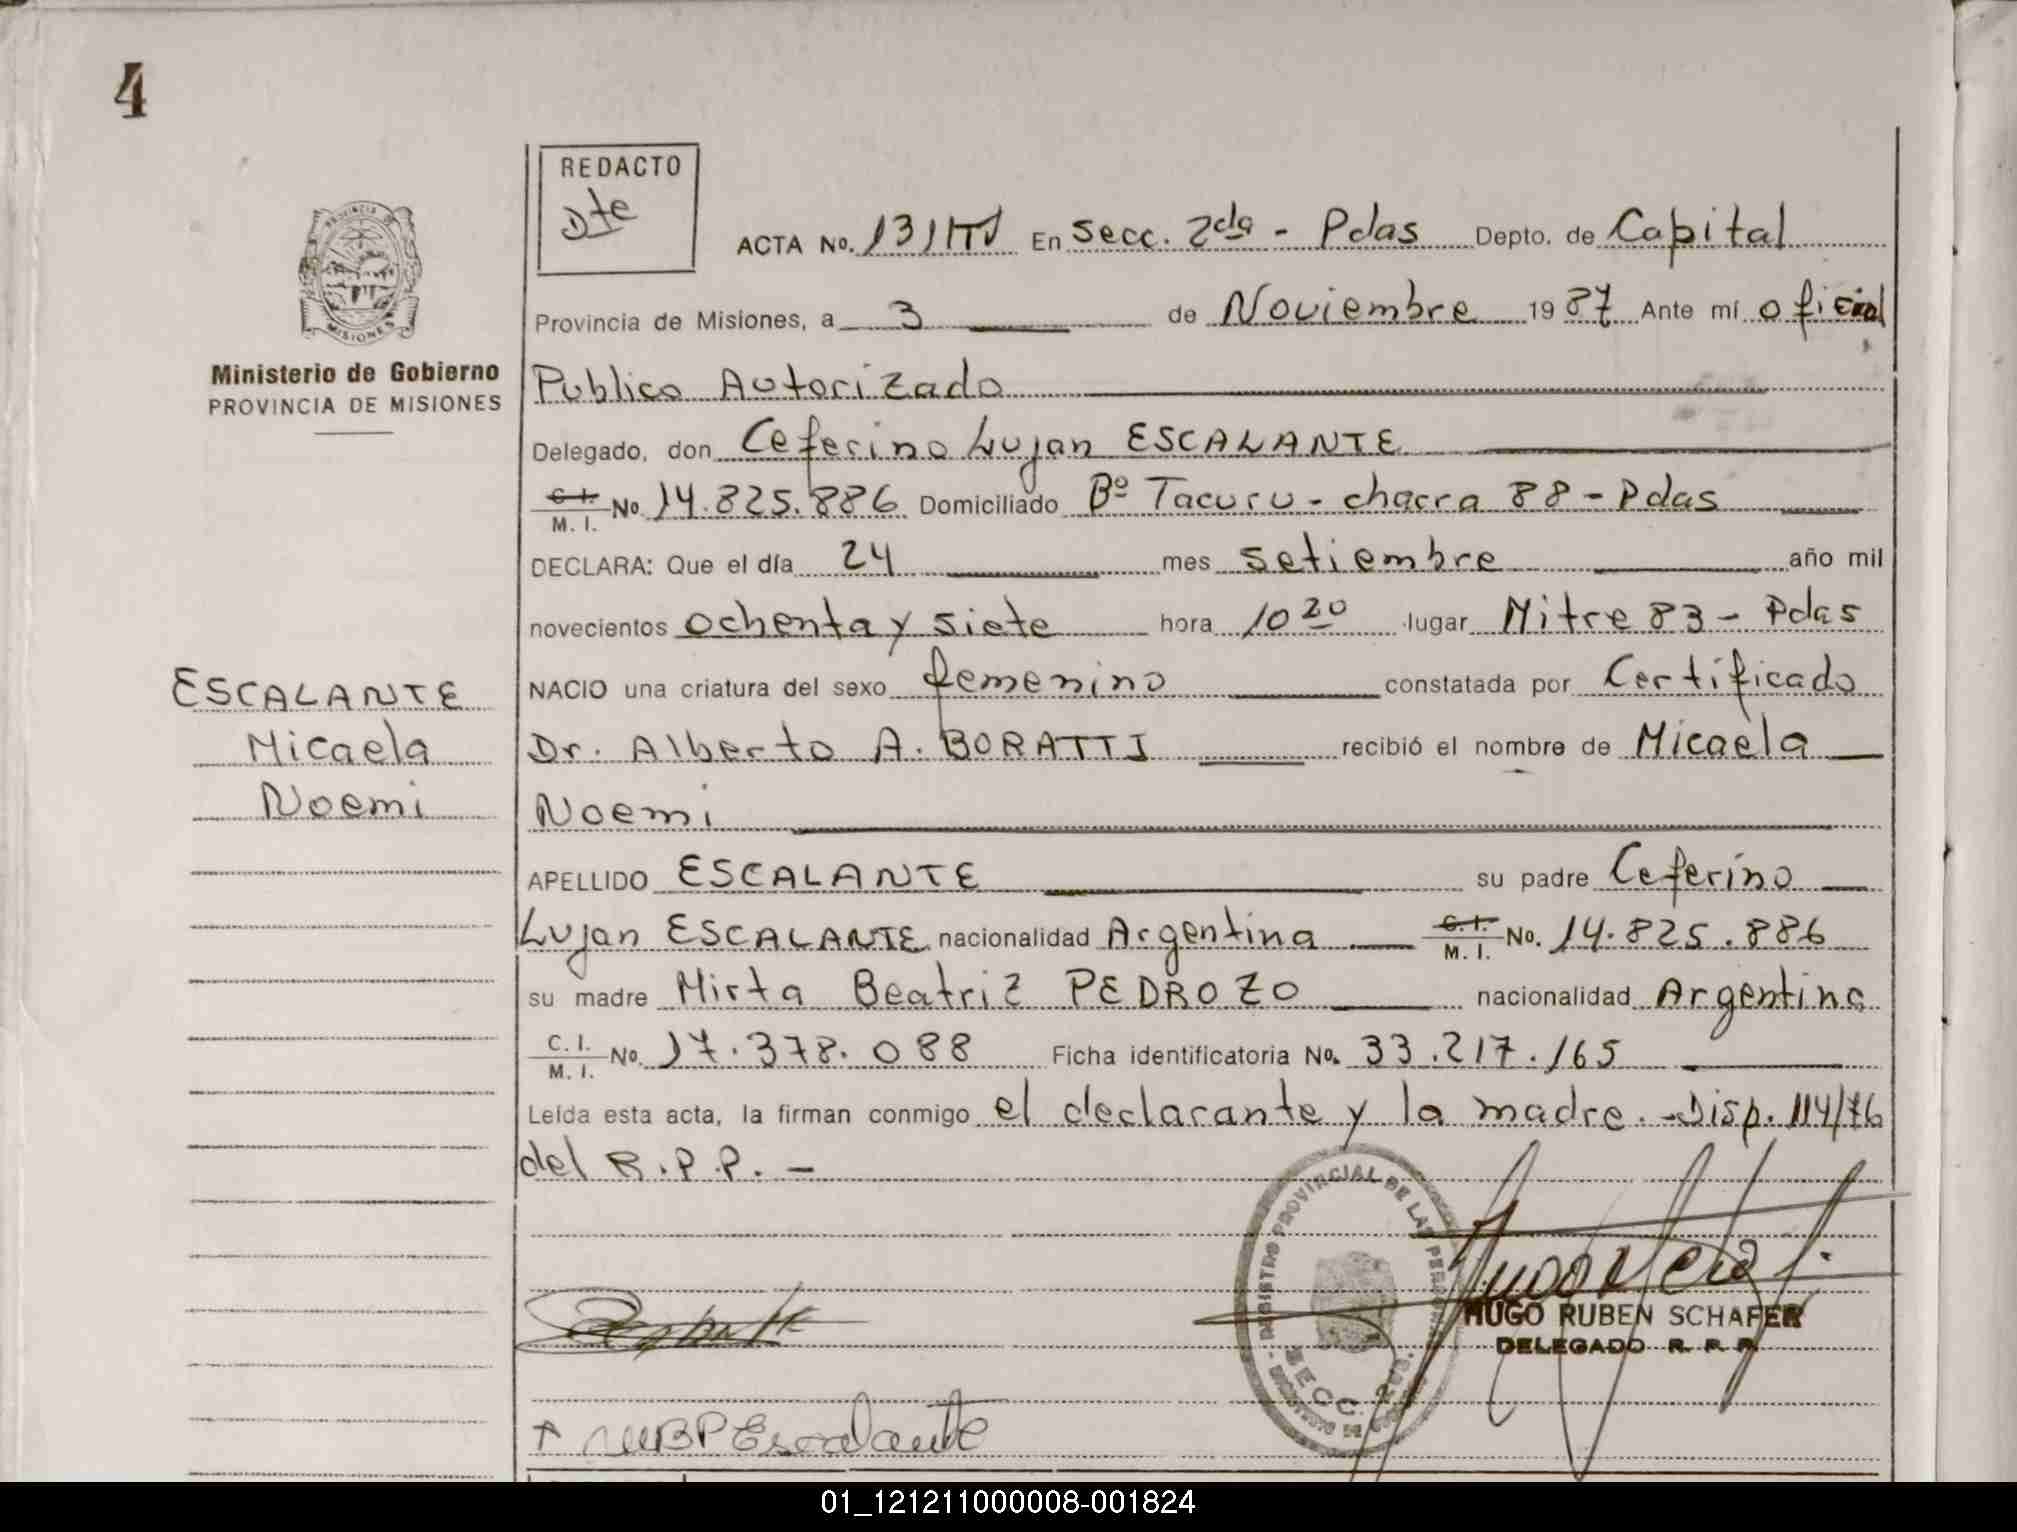 4
REDACTO
Dte
PROVINCIA DE
MISIONES
Ministerio de Gobierno
PROVINCIA DE MISIONES
ACTA No. 131 En Secc. 2da - Pdas Depto. de Capital
Provincia de Misiones, a 3 de Noviembre 1987 Ante mí oficial
Publico Autorizado
Delegado, don Ceferino Lujan ESCALANTE
C. I. / M. I. No. 14.825.886 Domiciliado Bº Tacuru - chacra 88 - Pdas
DECLARA: Que el día 24 mes setiembre año mil
novecientos ochenta y siete hora 10 20 lugar Mitre 83 - Pdas
NACIO una criatura del sexo femenino constatada por Certificado
Dr. Alberto A. BORATTI recibió el nombre de Micaela
Noemi
APELLIDO ESCALANTE su padre Ceferino
Lujan ESCALANTE nacionalidad Argentina C. I. / M. I. No. 14.825.886
su madre Mirta Beatriz PEDROZO nacionalidad Argentina
C. I. / M. I. No. 17.378.088 Ficha identificatoria No. 33.217.165
Leída esta acta, la firman conmigo el declarante y la madre. - Disp. 114/76
del R.P.P. -
ESCALANTE
Micaela
Noemi
REGISTRO PROVINCIAL DE LAS PERSONAS
SECC. 2da.
HUGO RUBEN SCHAFER
DELEGADO R. P. P.
MBP Escalante
01_121211000008-001824